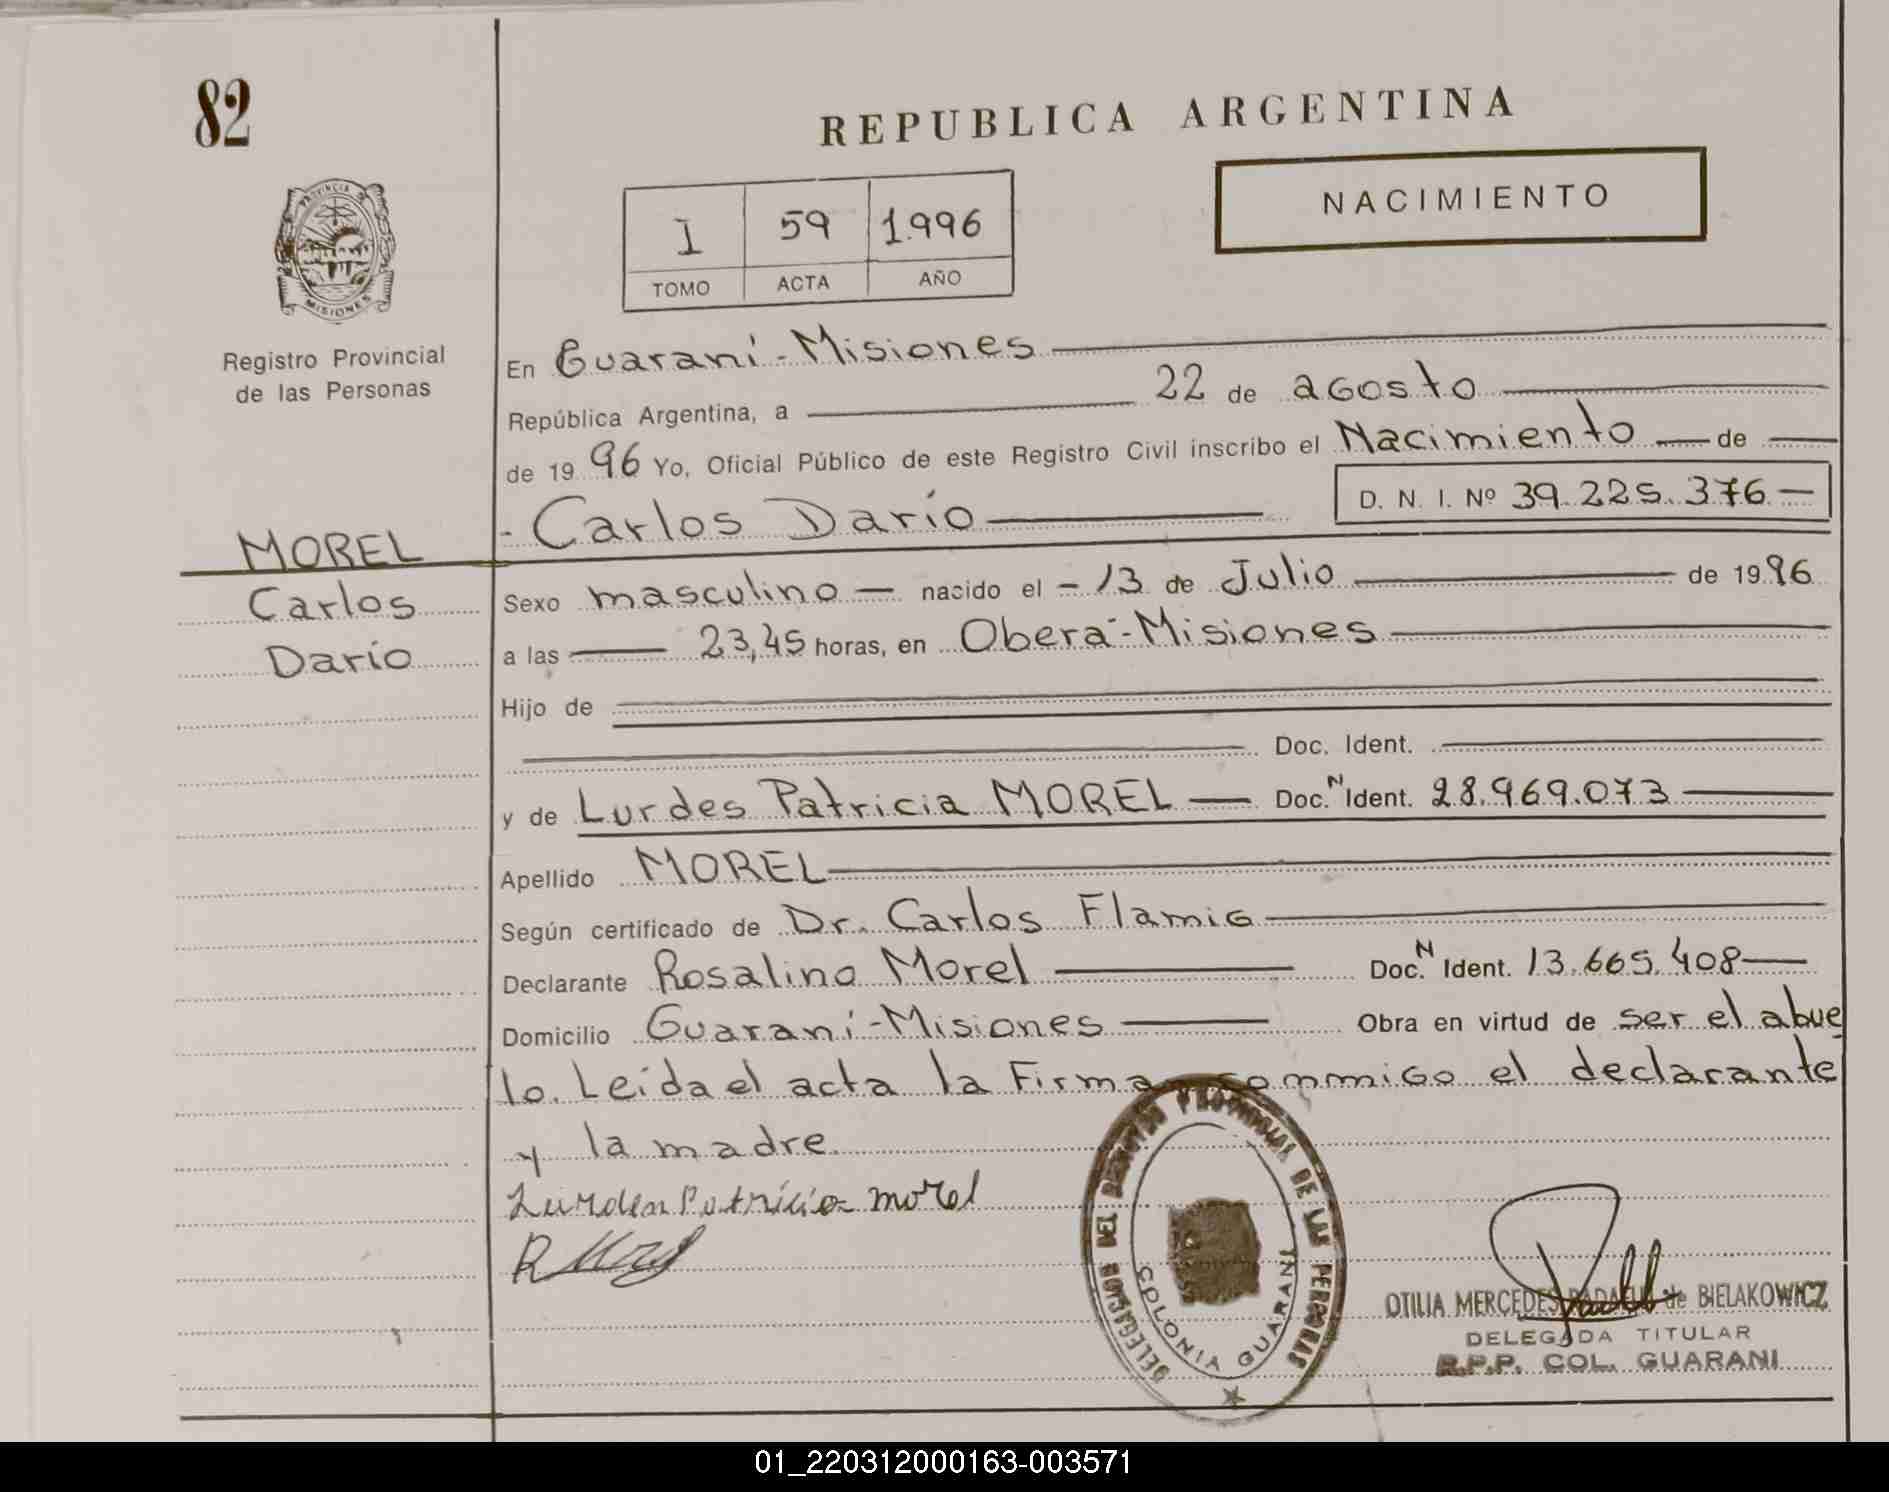 82
REPUBLICA ARGENTINA
NACIMIENTO
I 59 1.996
TOMO ACTA AÑO
PROVINCIA
MISIONES
Registro Provincial
de las Personas
En Guaraní - Misiones
República Argentina, a 22 de agosto
de 1996 Yo, Oficial Público de este Registro Civil inscribo el Nacimiento de
- Carlos Darío D. N. I. Nº 39.225.376 —
MOREL
Carlos
Darío
Sexo masculino — nacido el - 13 de Julio de 1996
a las 23,45 horas, en Oberá - Misiones
Hijo de
Doc. Ident.
y de Lurdes Patricia MOREL — Doc. N Ident. 28.969.073
Apellido MOREL
Según certificado de Dr. Carlos
Declarante Rosalino Morel Doc. N Ident. 13.665.408 —
Domicilio Guaraní - Misiones Obra en virtud de ser el abue
lo. Leída el acta la Firman commigo el declarante
y la madre
Lurdes Patricia morel
DELEGACION DEL REGISTRO PROVINCIAL DE LAS PERSONAS
COLONIA GUARANI
OTILIA MERCEDES de BIELAKOWICZ
DELEGADA TITULAR
R.P.P. COL. GUARANI
01_220312000163-003571